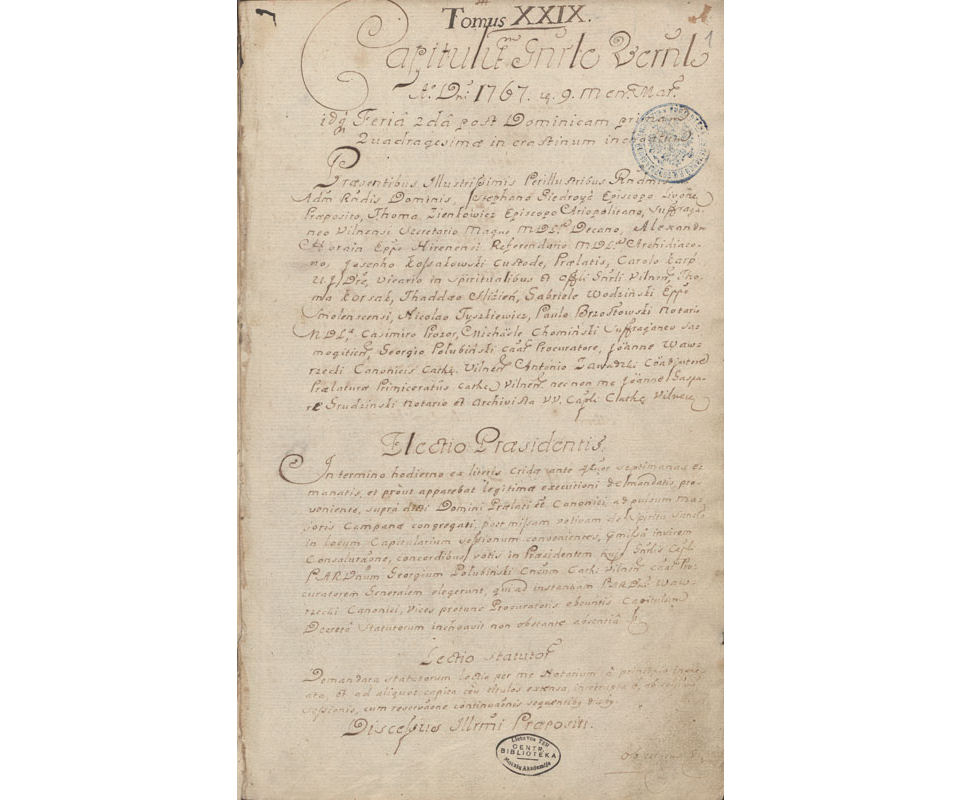 Tomus XXIX.
Capitulũ Gnrle Vernle
Ao Dni 1767. 9. Men. Mar.
idq Feriâ 2dâ post Dominicam primam
Quadragesimæ in crastinum
Præsentibus Illustrissimis Perillustribus Rndmis
Adm Rndis Dominis, Stephano Giedroyć Episcopo Livoñe
Præposito, Thoma Zienkowicz Episcopo Ariopolitano, Suffraga-
neo Vilnensi Secretario Magno MDL. Decano, Alexandro
Horain Eppo Hirenensi Referendario MDL. Archidiaco-
no, Josepho Kossakowski Custode, Prælatis, Carolo Karp
U.J.Dre, Vicario in Spiritualibus et Offli Gnrli Vilnen, Tho-
ma Korsak, Thaddæo Slizień, Gabriele Wodziński Eppo
Smolenscensi, Nicolao Tyszkiewicz, Paulo Brzostowski Notario
MDL. Casimiro Prozor, Michaële Chomiński Suffraganeo Sa-
mogitien, Georgio Połubiński Procuratore, Joanne Waw-
rzecki Canonicis Cathe Vilnen Antonio Zawadzki Coadjutore
Prælaturæ Primiceratus Cathe Vilnen nec non me Joanne Gaspa-
re Grudzinski Notario et Archivista VV. Capli Cathe Vilnen
Electio Præsidentis
In termino hodierno ex literis Cridæ ante septimanas e-
manatis, et proût apparebat legitimæ executioni demandatis, pro-
veniente, supra dicti Domini Prælati et Canonici, ad pulsum ma-
joris Campanæ congregati, post missam votivam de Spiritu Sancto
in locum Capitularium sessionum convenientes, præmissâ invicem
Consalutaõne, concordibus votis in Præsidentem hujus Gnrlis Capli
PARDnum Georgium Połubiński Cncum Cath: Vilnen Pro-
curatorem Generalem elegerunt, qui ad instantiam PARDni Waw-
rzecki Canonici, vices protunc Procuratoris obeuntis Capitulum
Decretô Statutorum inchoavit non obstante absentiâ
Lectio Statutor
Demandata Statutorum lectio per me Notarium â principio incho-
ata, et ad aliquot capita seu titulos extensa, interrupta ê, ob
sessionis, cum reservaõne continuaõnis sequentibus diebus.
Discessus Illrmi Præpositi.
Lietuvos TSR
CENTR.
BIBLIOTEKA
Mokslų Akademija